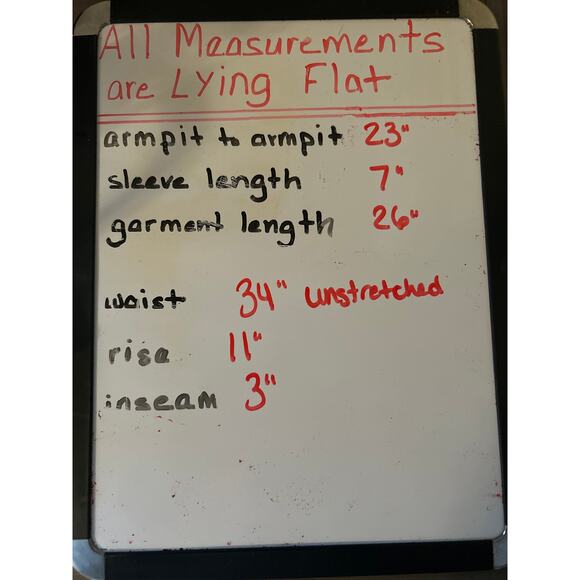 All Measurements
are Lying Flat
armpit to armpit 23"
sleeve length 7"
garment length 26"
waist 34" unstretched
rise 11"
inseam 3"